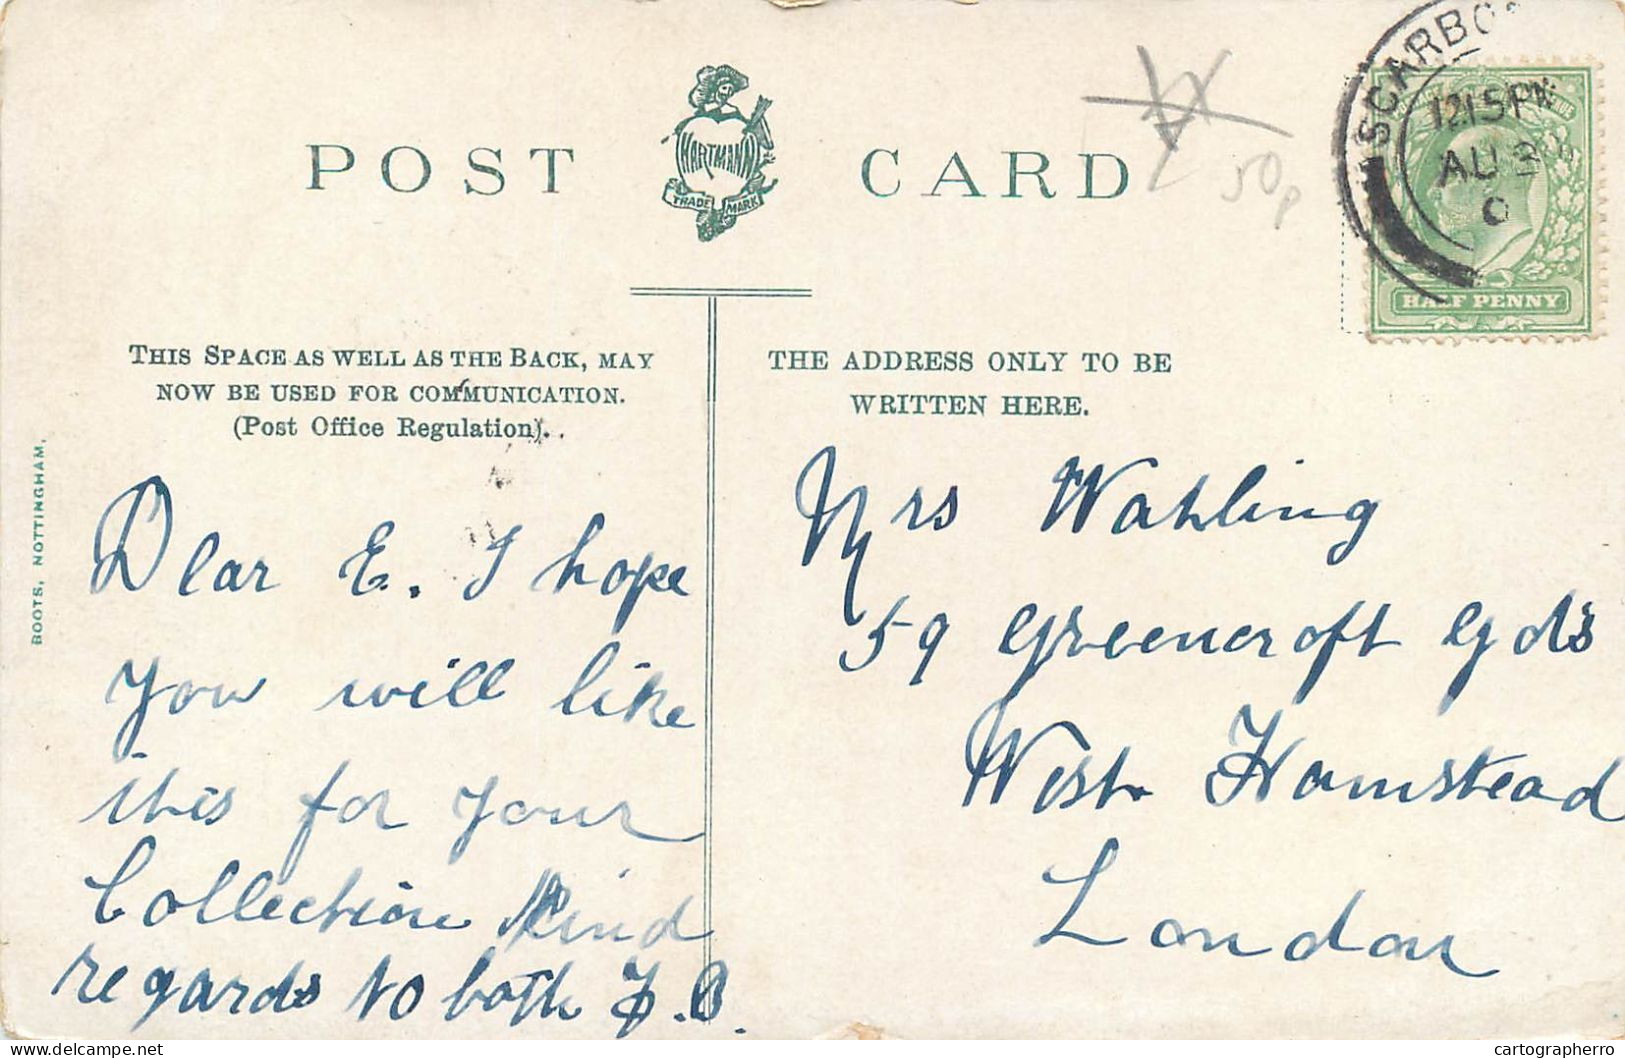 POST CARD
HARTMANN
TRADE MARK
50p
SCARBO
12 15 PM
AU 3
0
HALF PENNY
THIS SPACE AS WELL AS THE BACK, MAY
NOW BE USED FOR COMMUNICATION.
(Post Office Regulation).
THE ADDRESS ONLY TO BE
WRITTEN HERE.
BOOTS, NOTTINGHAM.
Dear E. I hope
you will like
this for your
Collection Kind
regards to both F.B.
Mrs Wahling
59 Greencroft Gdš
West Hamstead
London
delcampe.net
cartographerro